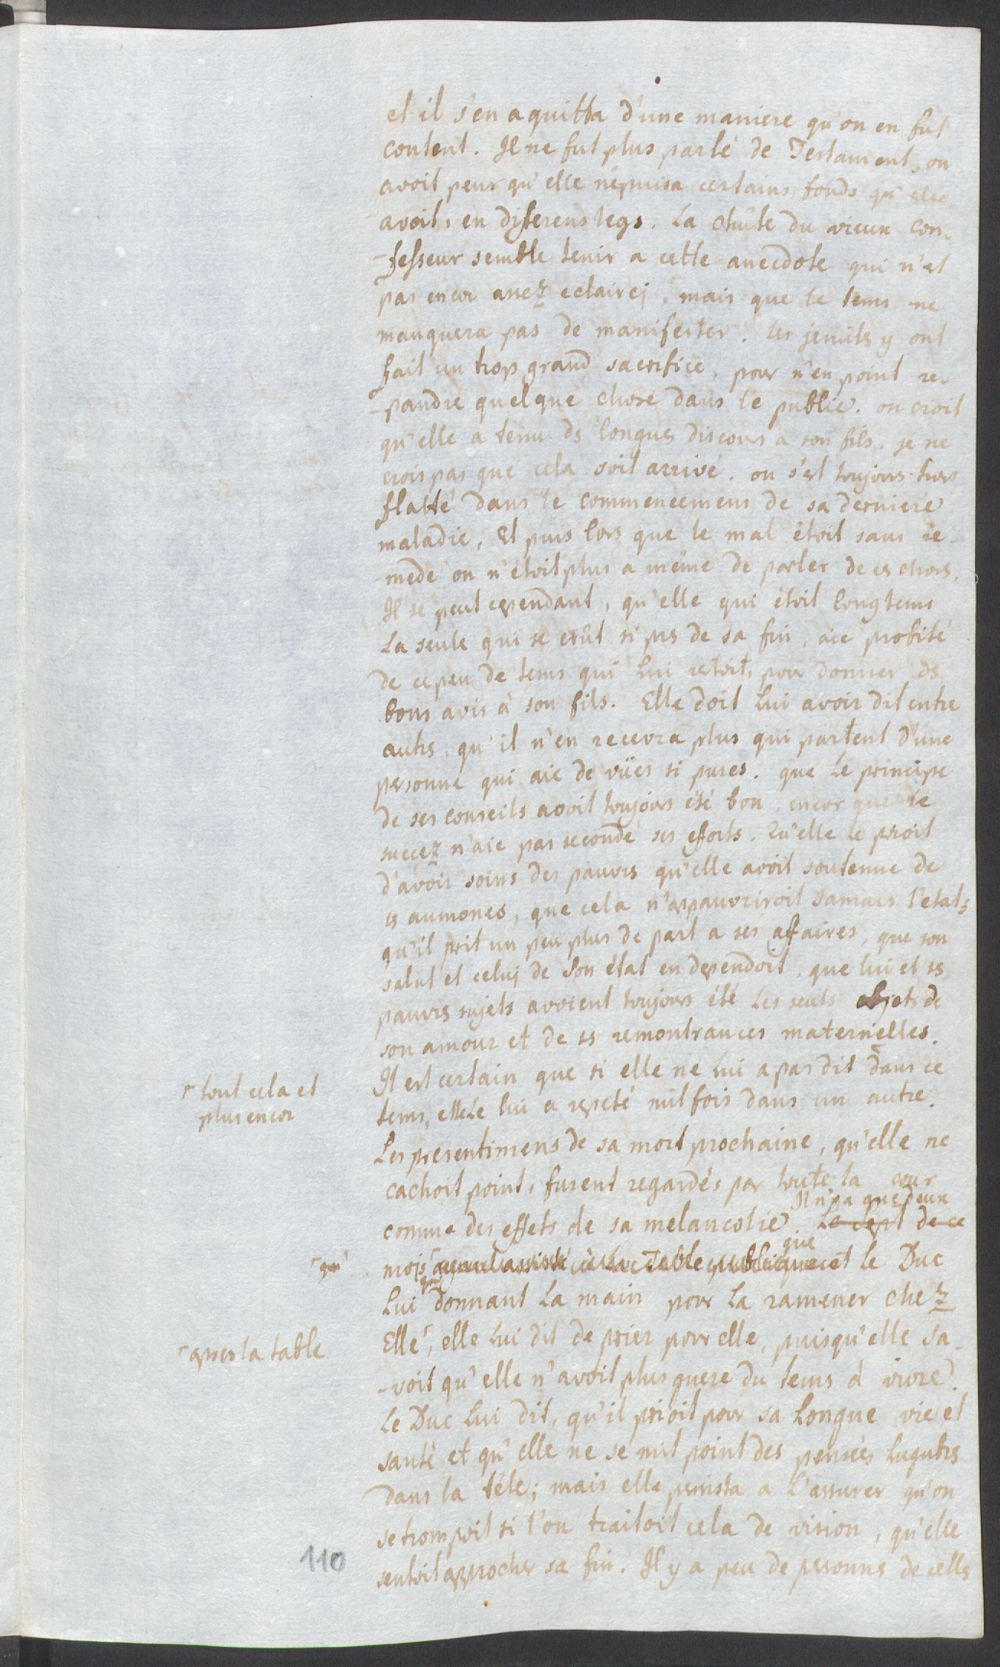 et il s'en aquitta d'une maniere qu'on en fut
content. Il ne fut plus parlé de Testament, on
avoit peur qu'elle n'epuisa certains fonds qu'elle
avoit, en diferens legs. La chûte du vieux con-
-fesseur semble tenir a cette anecdote qui n'est
pas encor assez eclairej, mais que le tems ne
manquera pas de manifester. les jesuits y ont
fait un trop grand sacrifice, pour n'en point re-
-pandre quelque chose dans le public. on croit
qu'elle a tenu ds longues discours a son fils. je ne
crois pas que cela soit arrivé. on s'est toujours
flatté dans le commencemens de sa derniere
maladie, Et puis lors que le mal étoit sans re-
-mede on n'étoit plus a même de parler de cs choses.
Il se peut cependant, qu'elle qui étoit longtems
La seule qui se crût si prs de sa fin, aie profité
de ce peu de tems qui lui restoit, pour donner ds
bons avis à son fils. Elle doit Lui avoir dit entre
autrs, qu'il n'en recevra plus qui partent d'une
personne qui aie de vües si pures. que Le principe
de ses conseils avoit toujours été bon, encor que le
succez n'aie pas secondé ses efforts. Qu'elle le prioit
d'avoir soins des pauvrs qu'elle avoit soutenue de
ss aumones, que cela n'appauvriroit jamais l'etat,
qu'il prit un peu plus de part a ses afaires, que son
salut et celuj de son état en dependoit, que lui et ss
pauvrs sujets avoient toujours été Les seuls objets de
son amour et de ss remontrances maternelles.
Il est certain que si elle ne Lui a pas dit dans ce
⌜tout cela et
plus encor
tems, elle le lui a repeté mil fois dans un autre.
Les presentimens de sa mort prochaine, qu'elle ne
cachoit point, furent regardés par toute la cour
Il n'y a que deux
comme des effets de sa melancolie. Le sept de ce
que
⌜qu'
mois ayant assisté à la Table publique et le Duc
Lui donnant La main pour La ramener chez
⌜apres la table
Elle⌜, elle Lui dit de prier pour elle, puisqu'elle sa-
-voit qu'elle n'avoit plus guere du tems à vivre.
Le Duc Lui dit, qu'il prioit pour sa Longue vie et
santé et qu'elle ne se mit point des pensées lugubrs
dans la tête; mais elle persista a L'assurer qu'on
se trompoit si l'on traitoit cela de vision, qu'elle
sentoit approcher sa fin. Il y a peu de personns de cells
110